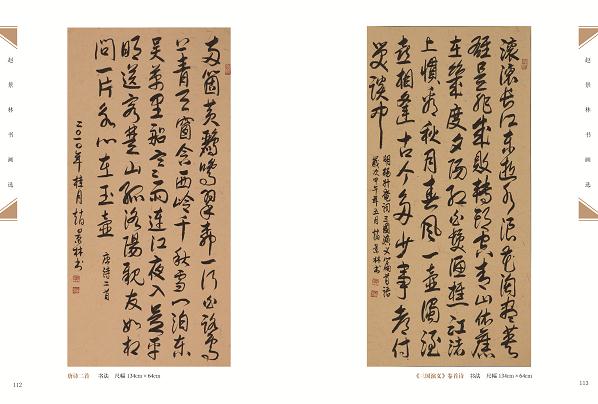 赵景林书画选
兩箇黃鸝鳴翠柳一行白鷺
上青天窗含西岭千秋雪门泊东
吴萬里船寒雨连江夜入吴平
明送客楚山孤洛陽親友如相
问一片冰心在玉壶 唐诗二首
二〇一〇年桂月 赵景林书
唐诗二首 书法 尺幅 134cm×64cm
112
滚滚长江东逝水浪花淘尽英
雄是非成败转头空青山依旧
在幾度夕阳红白发渔樵江渚
上惯看秋月春风一壶浊酒
喜相逢古今多少事都付
笑谈中
明杨升庵词三國演义篇首语
岁次甲午年五月赵景林书
《三国演义》卷首诗 书法 尺幅 134cm×64cm
113
赵景林书画选